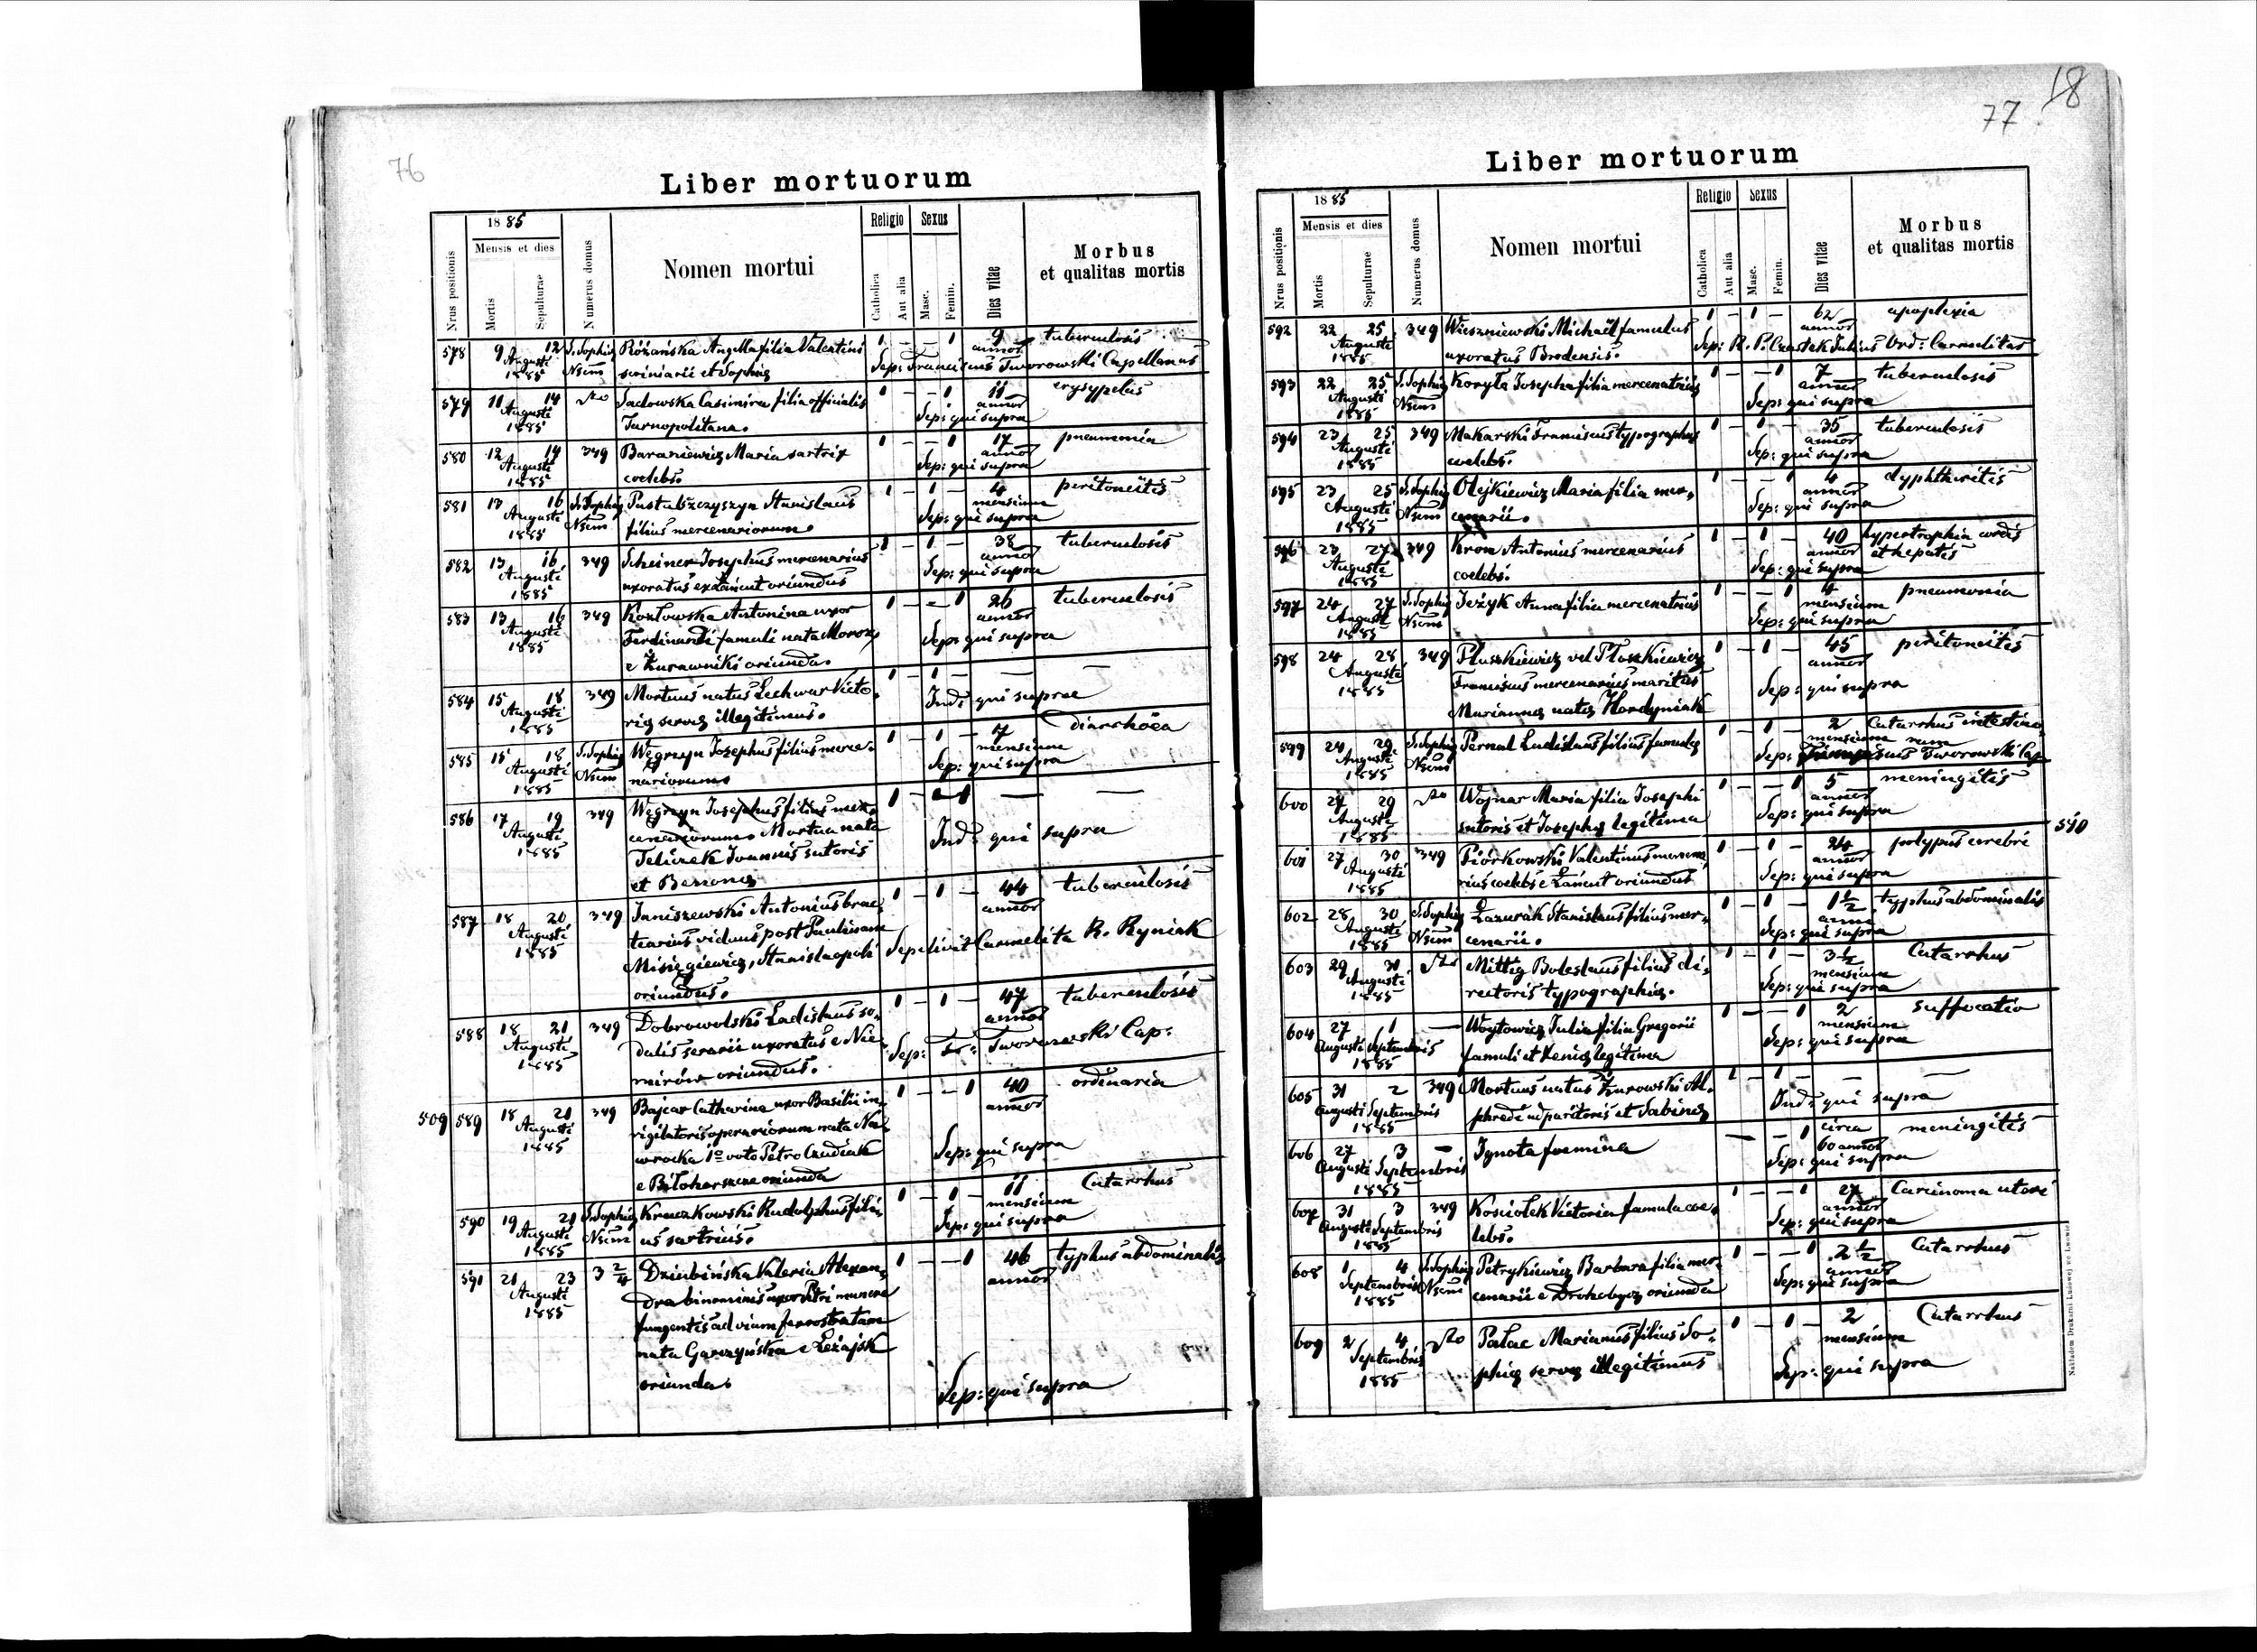 76
Liber mortuorum
Nrus positionis
1885
Mensis et dies
Mortis
Sepulturae
Numerus domus
Nomen mortui
Religio
Catholica
Aut alia
Sexus
Masc.
Femin.
Dies vitae
Morbus
et qualitas mortis
578 9 12 S. Sophię Różańska Angella filia Valentini 1 – – 1 9 tuberculosis
Augusti Nsem scriniarii et Sophię annor
1885 Sep: Franciscus Tworowski Capellanus
579 11 14 dto Sadowska Casimira filia officialis 1 – – 1 11 erysypelas
Augusti Tarnopolitana. annor
1885 Sep: qui supra
580 12 14 349 Baraniewicz Maria sartrix 1 – – 1 17 pneumonia
Augusti coelebs. annor
1885 Sep: qui supra
581 13 16 S. Sophię Stanislaus 1 – 1 – 4 peritoneitis
Augusti Nsem filius mercenariorum. mensium
1885 Sep: qui supra
582 13 16 349 Scheiner Josephus mercenarius 1 – 1 – 38 tuberculosis
Augusti uxoratus ex Łańcut oriundus annor
1885 Sep: qui supra
583 13 16 349 Kozłowska Antonina uxor 1 – – 1 26 tuberculosis
Augusti Ferdinandi famuli nata Moroz, annor
1885 e Żurawniki oriunda. Sep: qui supra
584 15 18 349 Mortuus natus Lechwar Victo- 1 – 1 – — —
Augusti rię servę illegitimus. Ind: qui supra
1885
585 15 18 S. Sophię Węgrzyn Josephus filius merce- 1 – 1 – 7 diarrhöea
Augusti Nsem nariorum. mensium
1885 Sep: qui supra
586 17 19 349 Węgrzyn Josephus filius mer- 1 – – 1 — —
Augusti cenariorum. Mortua nata
1885 Joannis sutoris Ind: qui supra
et
587 18 20 349 Janiszewski Antonius brac- 1 – 1 – 44 tuberculosis
Augusti tearius viduus post Paulinam annor
1885 Misięgiewicz, Stanislaopoli Sepelivit Carmelita R. Ryniak
oriundus.
588 18 21 349 Dobrowolski Ladislaus so- 1 – 1 – 47 tuberculosis
Augusti dalis serarii uxoratus e Nie- annor
1885 mirów oriundus. Sep: Fr: Tworowski Cap:
509 589 18 21 349 Bajcar Catharina uxor Basilii in- 1 – – 1 40 ordinaria
Augusti vigilatoris operariorum nata Na- annor
1885 wrocka 1º voto Petro Czudiak
e Biłohorszcze oriunda Sep: qui supra
590 19 21 S. Sophię Kruczkowski Rudolphus fili- 1 – 1 – 11 Catarrhus
Augusti Nsem us sartricis. mensium
1885 Sep: qui supra
591 21 23 3 2/4 Dziubińska Valeria Alexan- 1 – – 1 46 typhus abdominalis
Augusti dra binominis uxor Petri munere annor
1885 fungentis ad viam ferrostratam
nata Garczyńska e Leżajsk
oriunda. Sep: qui supra
18
77
Liber mortuorum
Nrus positionis
1885
Mensis et dies
Mortis
Sepulturae
Numerus domus
Nomen mortui
Religio
Catholica
Aut alia
Sexus
Masc.
Femin.
Dies vitae
Morbus
et qualitas mortis
592 22 25 349 Wiszniewski Michaël famulus 1 – 1 – 62 apoplexia
Augusti uxoratus Brodensis. annor
1885 Sep: R. P. Czastek Julius Ord: Carmelitar
593 22 25 S. Sophię Koryła Josepha filia mercenatricis 1 – – 1 7 tuberculosis
Augusti Nsem annor
1885 Sep: qui supra
594 23 25 349 Makarski Franciscus typographus 1 – 1 – 35 tuberculosis
Augusti coelebs. annor
1885 Sep: qui supra
595 23 25 S. Sophię Olejkiewicz Maria filia mer- 1 – – 1 4 dyphtheritis
Augusti Nsem cenarii. annor
1885 Sep: qui supra
596 23 27 349 Krom Antonius mercenarius 1 – 1 – 40 hypertrophia cordis
Augusti coelebs. annor et hepatis
1885 Sep: qui supra
597 24 27 S. Sophię Jeżyk Anna filia mercenatricis 1 – – 1 4 pneumonia
Augusti Nsem mensium
1885 Sep: qui supra
598 24 28 349 Płuszkiewicz vel Płoszkiewicz 1 – 1 – 45 peritoneitis
Augusti Franciscus mercenarius maritus annor
1885 Mariannę natę Hordyniak Sep: qui supra
599 24 29 S. Sophię Pernal Ladislaus filius famulę 1 – 1 – 2 Catarrhus intestino-
Augusti Nsem mensium rum
1885 Sep: Franciscus Tworowski Cap
600 27 29 dto Wojnar Maria filia Josephi 1 – – 1 5 meningitis
Augusti sutoris et Josephę legitima annor
1885 Sep: qui supra
601 27 30 349 Piórkowski Valentinus mercena- 1 – 1 – 24 polypus cerebri 510
Augusti rius coelebs e Łańcut oriundus annor
1885 Sep: qui supra
602 28 30 S. Sophię Łazurak Stanislaus filius mer- 1 – 1 – 1 1/2 typhus abdominalis
Augusti Nsem cenarii. anni
1885 Sep: qui supra
603 29 31 dto Mittig Boleslaus filius di- 1 – 1 – 3 1/2 Catarrhus
Augusti rectoris typographię. mensium
1885 Sep: qui supra
604 27 1 — Woytowicz Julia filia Gregorii 1 – – 1 2 suffocatio
Augusti Septembris famuli et Xenię legitima mensium
1885 Sep: qui supra
605 31 2 349 Mortuus natus Żurowski Al- 1 – 1 – — —
Augusti Septembris phredi adparitoris et Sabinę Ind: qui supra
1885
606 27 3 – Ignota foemina — – 1 circa meningitis
Augusti Septembris 60 annor
1885 Sep: qui supra
607 31 3 349 Kosciolek Victoria famula coe- 1 – – 1 27 Carcinoma uteri
Augusti Septembris lebs. annor
1885 Sep: qui supra
608 1 4 S. Sophię Petrykiewicz Barbara filia mer- 1 – – 1 2 1/2 Catarrhus
Septembris Nsem cenarii e Drohobycz oriunda annor
1885 Sep: qui supra
609 2 4 dto Pałac Marianus filius So- 1 – 1 – 2 Catarrhus
Septembris phię servę illegitimus mensium
1885 Sep: qui supra
Nakładem Drukarni Ludowej we Lwowie